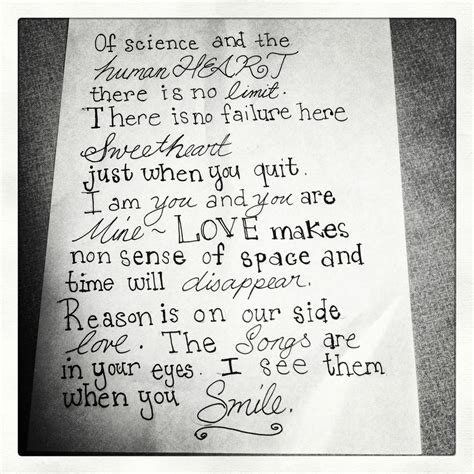 Of science and the
human HEART
there is no limit.
There is no failure here
Sweetheart
just when you quit.
I am you and you are
Mine ~ LOVE makes
non sense of space and
time will disappear.
Reason is on our side
love. The Songs are
in your eyes. I see them
when you Smile.